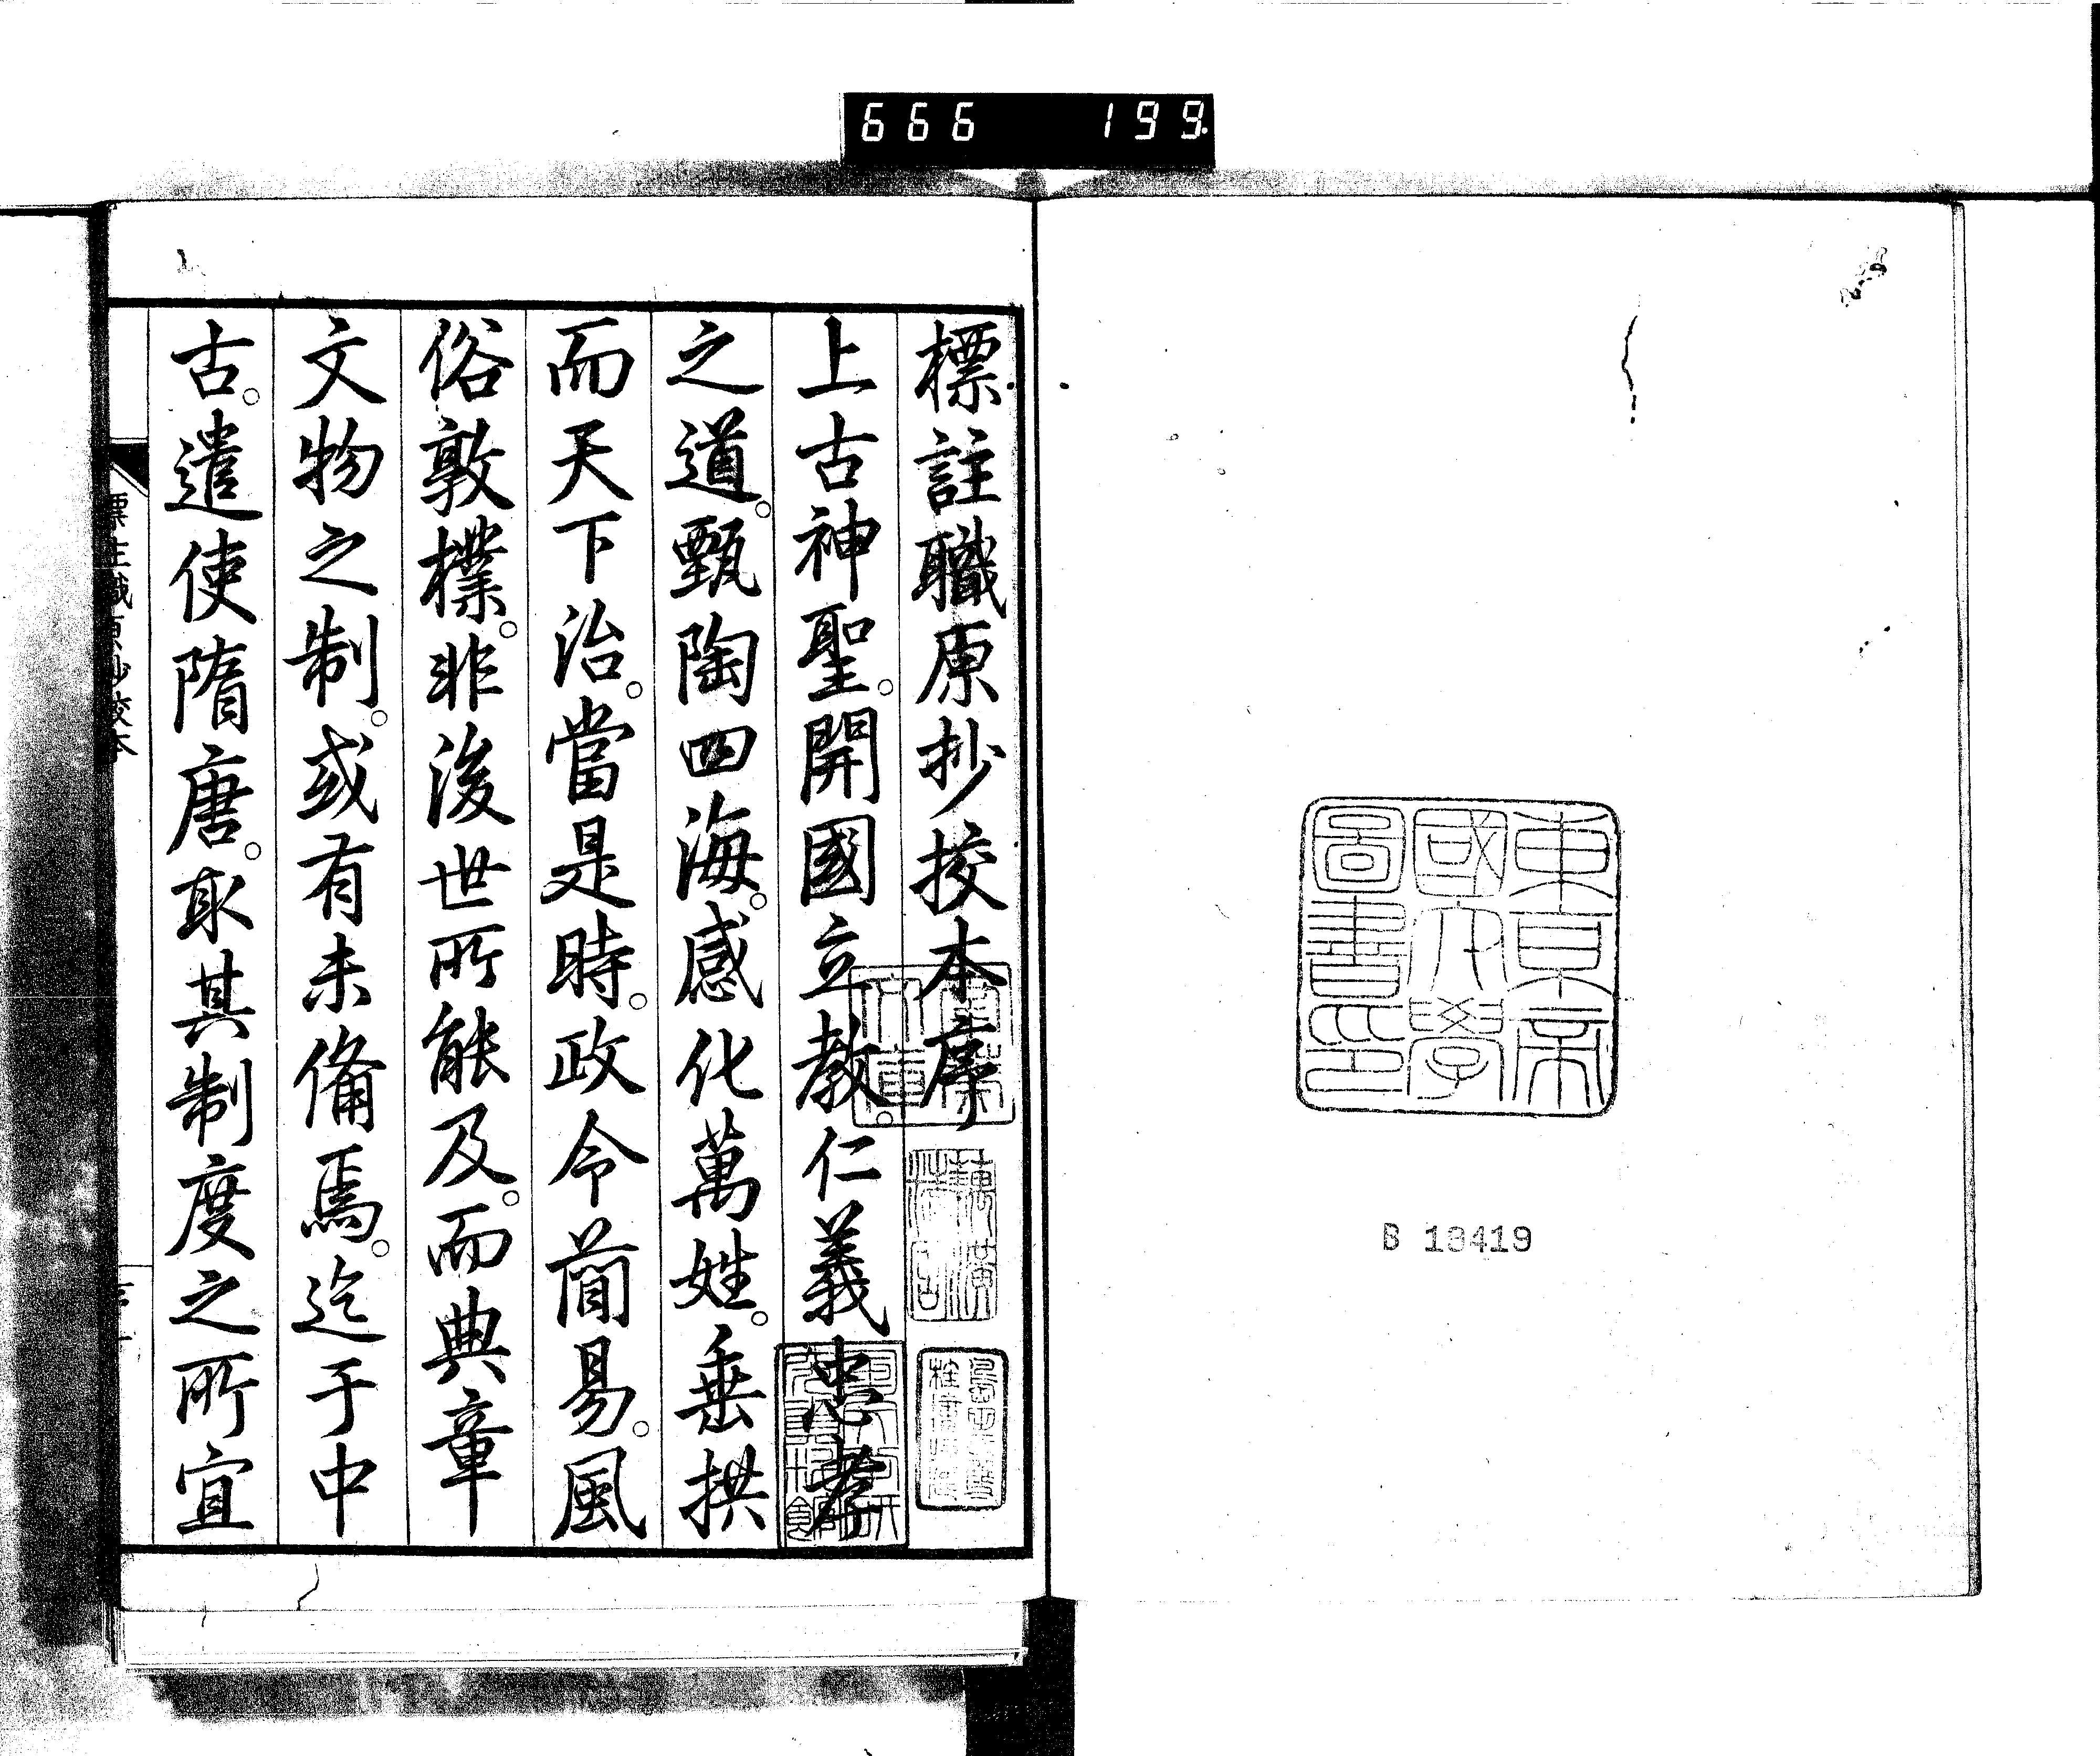 666 199.
東京帝
國大學
圖書印
B 18419
標註職原抄挍本序
上古神聖。開國立教。仁義忠孝
之道。甄陶四海。感化萬姓。垂拱
而天下治。當是時。政令簡易。風
俗敦樸。非後世所能及。而典章
文物之制。或有未備焉。迄于中
古。遣使隋唐。取其制度之所宜
標注職原抄校本